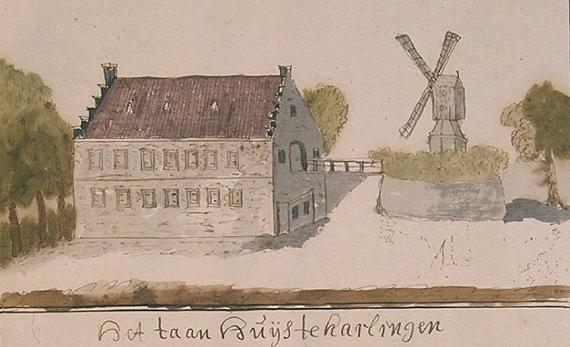 Het taan Huijs te harlingen